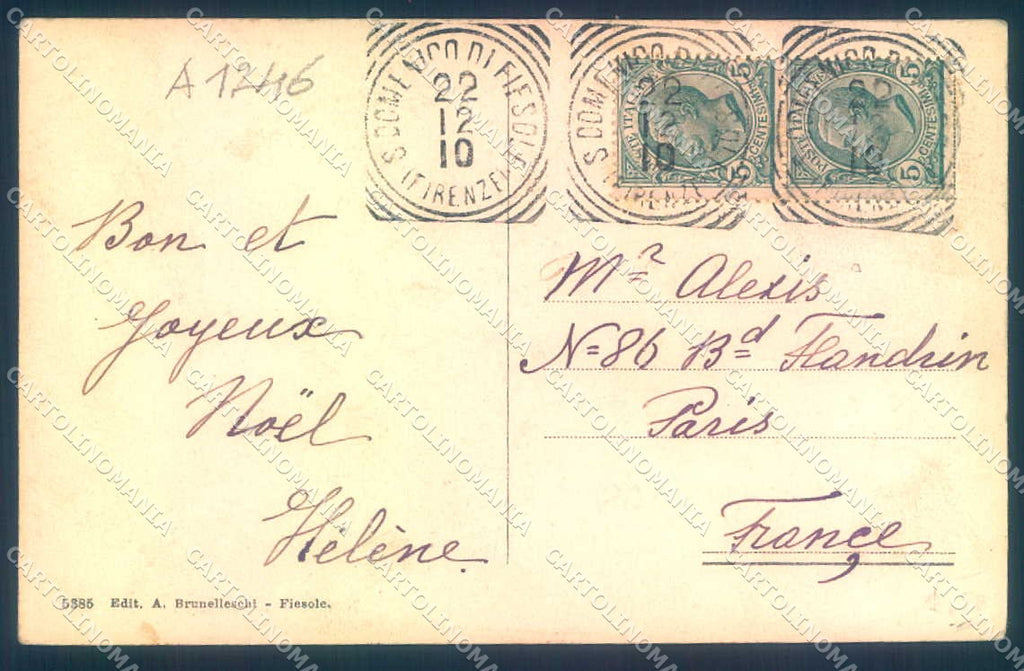 A1246
S. DOMENICO DI FIESOLE (FIRENZE)
22
12
10
S. DOMENICO DI
22
10
(FIRENZE)
POSTE ITALIANE
CENTESIMI
5
5
POSTE ITALIANE
CENTESIMI
5
5
Bon et
Joyeux
Noël
Hélène.
Mr Alexis
No 86 Bd Flandrin
Paris
France
5385 Edit. A. Brunelleschi - Fiesole.
CARTOLINOMANIA